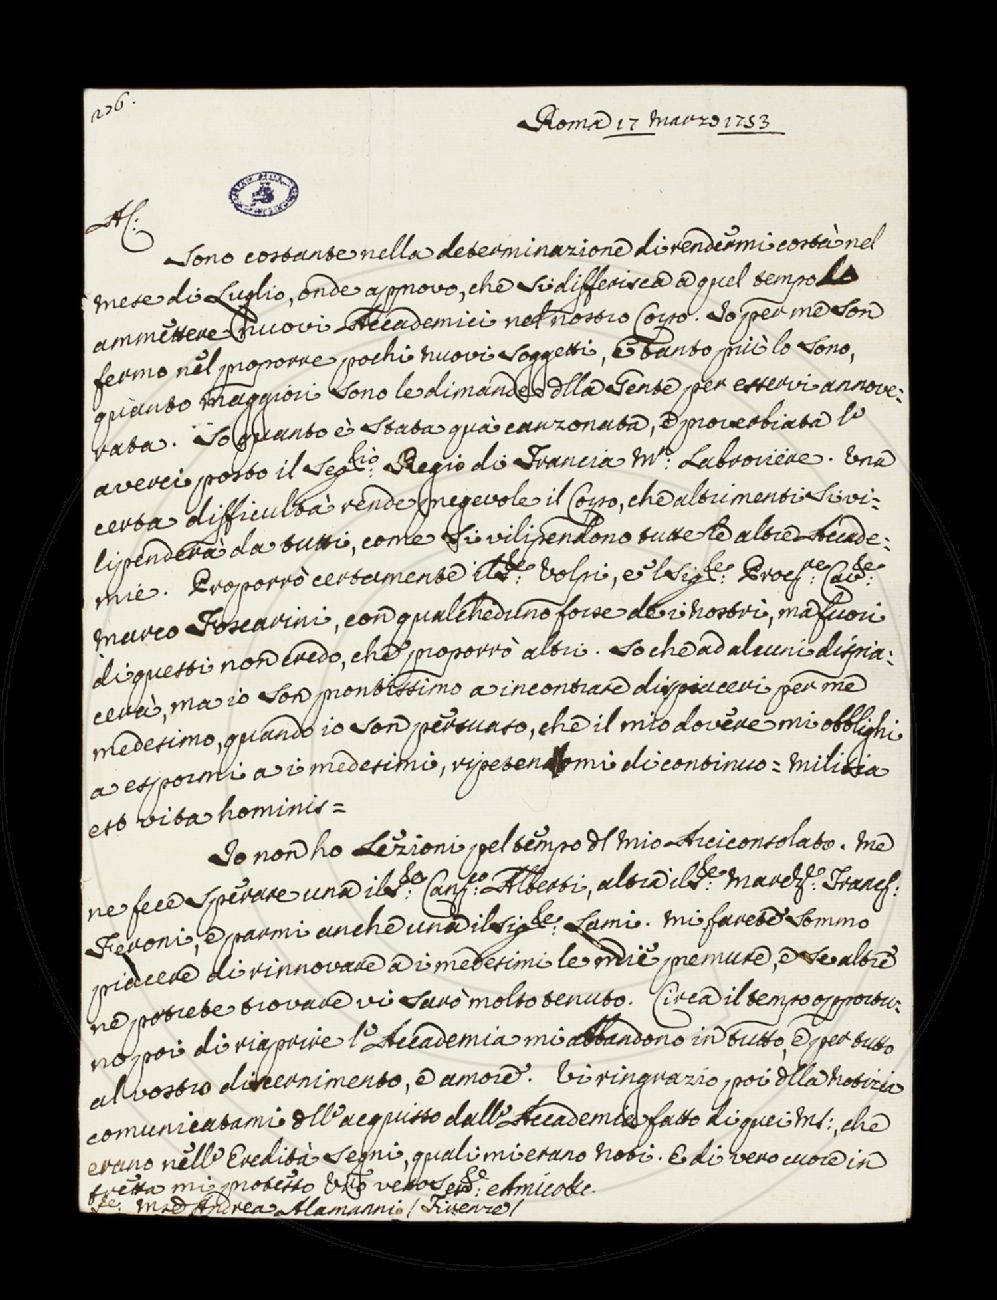 226.
Roma 17 Marzo 1753
A:
Sono costante nella determinazione di rendermi costà nel
mese di Luglio, onde approvo, che si differisca a quel tempo lo
ammettere nuovi Accademici nel nostro Corpo. Io per me son
fermo nel proporre pochi nuovi soggetti, e tanto più lo sono,
quanto maggiori sono le dimande dlla Gente per esservi annove-
rata. So quanto è stata quà canzonata, e proverbiata l'
averci posto il Seg:rio Regio di Francia Mr: Labroviere. Una
certa difficultà rende pregevole il Corpo, che altrimenti si vi-
lipenderà da tutti, come si vilipendono tutte le altre Accade-
mie. Proporrò certamente il Sr: Volpi, e 'l Sigre: Procre Cave:
Marco Foscarini, con qualcheduno forse de i nostri, ma fuori
di questi non credo, che proporrò altri. So che ad alcuni dispia-
cerà, ma io son prontissimo a incontrare dispiaceri per me
medesimo, quando io son persuaso, che il mio dovere mi obblighi
a espormi a i medesimi, ripetendomi di continuo = militia
est vita hominis =
Io non ho Lezioni pel tempo dl mio Arciconsolato. Me
ne fece sperare una il Sr: Canco: Alberti, altra il Sre: Marche: Francs:
Feroni, e parmi anche una il Sigre: Lami. Mi farete sommo
piacere di rinnovare a i medesimi le mie premure, e se altre
ne potrete trovare vi sarò molto tenuto. Circa il tempo opportu-
no poi di riaprire l'Accademia mi abbandono in tutto, e per tutto
al vostro discernimento, e amore. Vi ringrazio poi dlla notizia
comunicatami dll'acquisto dall'Accademia fatto di quei Ms:, che
erano nell'Eredità Segni, quali mi erano noti. E di vero cuore in
fretta mi protesto Vro vero Serre: e Amico &c.
Sre: Mad Andrea Alamanni / Firenze /